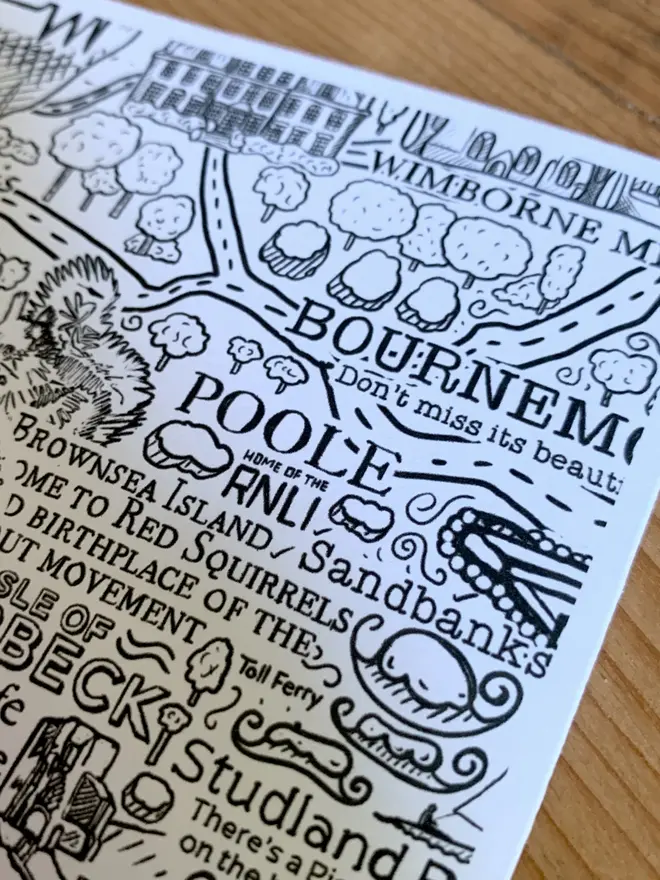 WIMBORNE MI
BOURNEMO
Don't miss its beauti
POOLE
HOME OF THE
RNLI
BROWNSEA ISLAND
OME TO RED SQUIRRELS
D BIRTHPLACE OF THE
OUT MOVEMENT
Sandbanks
ISLE OF
BECK
Toll Ferry
Studland B
There's a Pi
on the